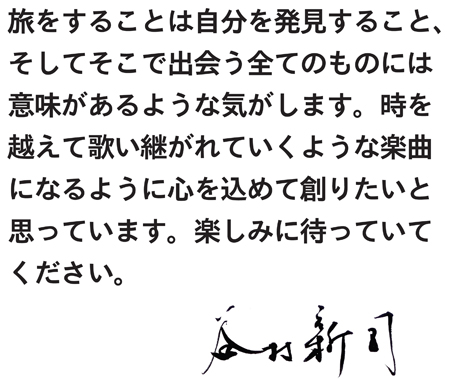 旅をすることは自分を発見すること、
そしてそこで出会う全てのものには
意味があるような気がします。時を
越えて歌い継がれていくような楽曲
になるように心を込めて創りたいと
思っています。楽しみに待っていて
ください。
谷村新司